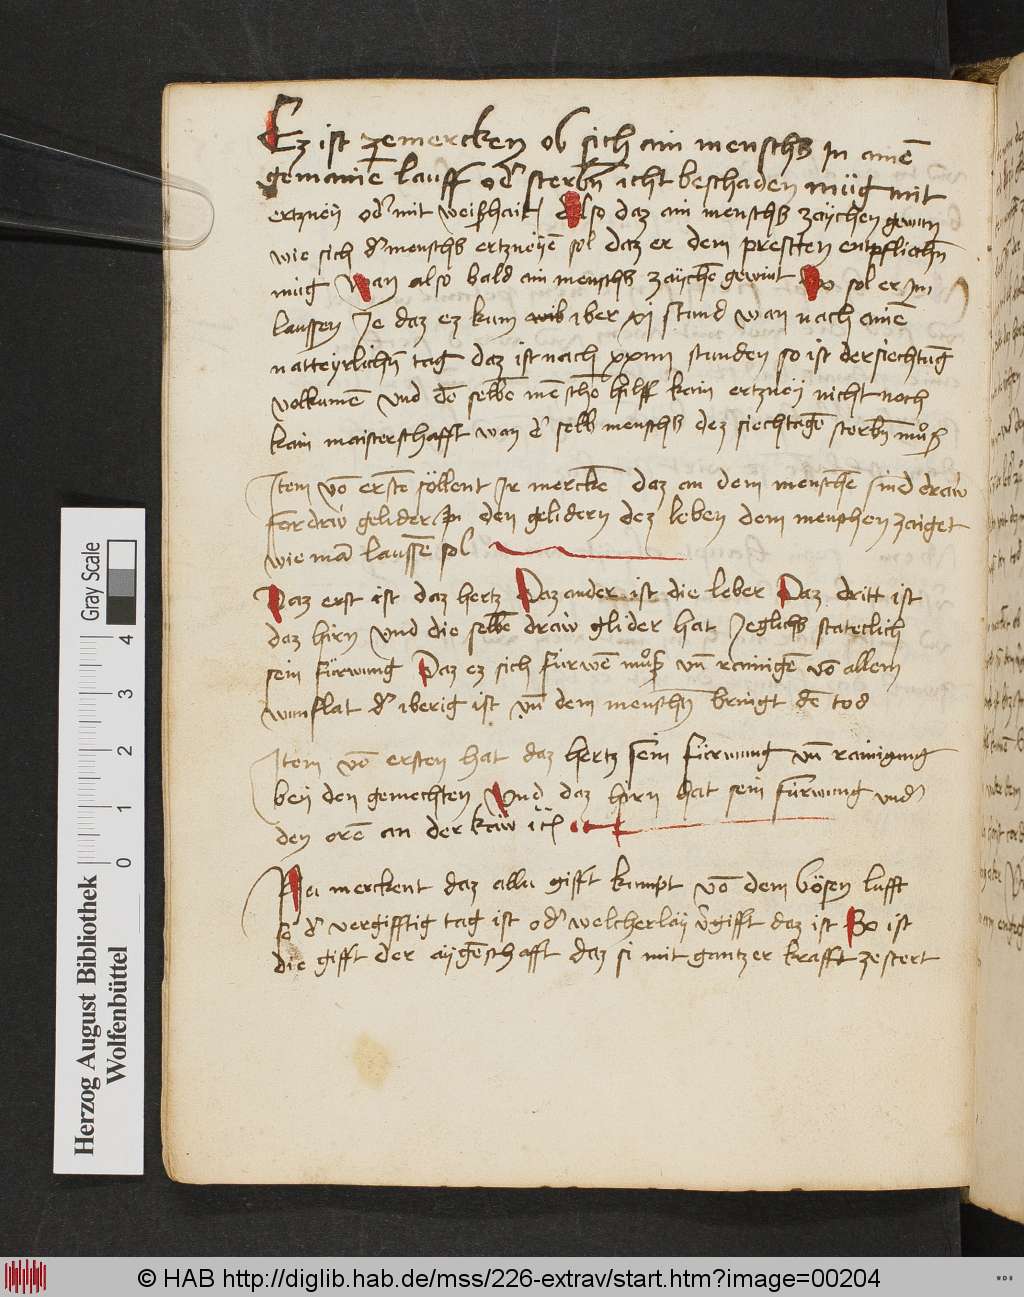 Ez ist zemercken ob sich ain menschs In ainē
gemainē lauff od͛ sterbn̄ icht beschaden müg mit
ertzneÿ od͛ mit weißhait Also daz ain menschs zaÿchen gewun
wie sich d͛ menschs ertzneÿē sol daz er dem presten entpfliechn̄
müg Wan also bald ain menschs zaÿchē gewint So sol er Im
laussen Je daz ez kum iber xij stund wan nach ainē
natteyrlichn̄ tag daz ist nach xxiiii stunden so ist der siechtūg
volkumē vnd dē selbē mēschē hilff kain ertzneÿ nicht noch
kain maisterschafft wan d͛ selb menschs dez siechtagē sterbn̄ muͦß
Item vō erstē söllent Ir merckē daz an dem menschē sind draw
fordraw gelider In den gelidern dez leben dem menschen zaiget
wie mā laussē sol
Daz erst ist daz hertz Daz ander ist die leber Daz dritt ist
daz hirn vnd die selbē draw glider hat Jeglichs stateclich
sein fürwung Daz ez sich fürwē muͦß vn̄ rainigē vō allem
wunflat d͛ iberig ist vn̄ dem menschn̄ bringt dē tod
Item vō ersten hat daz hertz sein fürwung vn̄ rainigung
beÿ den gemechten Vnd daz hirn hat sein fürwung vnd͛
den orē an der kaw
Nu merckent daz allu gifft kumpt vō dem bösen lufft
so d͛ vergifftig tag ist od͛ welcherlaÿ v̄gifft daz ist So ist
die gifft der aÿgēschafft daz si mit gantzer krafft zestert
Herzog August Bibliothek
Wolfenbüttel
Gray Scale
0 1 2 3 4
© HAB http://diglib.hab.de/mss/226-extrav/start.htm?image=00204